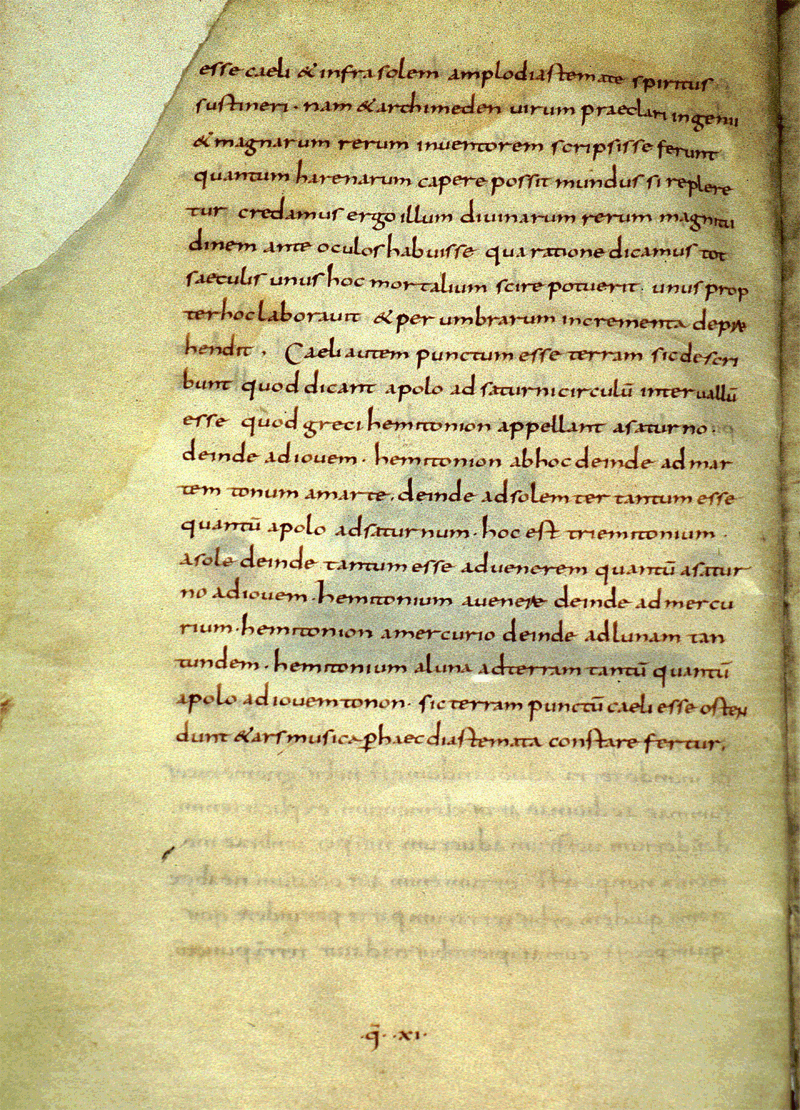 esse caeli & infra solem amplo diastemate spiritus
sustineri · nam & archimeden uirum praeclari ingenii
& magnarum rerum inuentorem scripsisse ferunt
quantum harenarum capere possit mundus si replere
tur credamus ergo illum diuinarum rerum magnitu
dinem ante oculos habuisse qua ratione dicamus tot
saeculis unus hoc mortalium scire potuerit · unus prop
ter hoc laborauit & per umbrarum incrementa depræ
hendit , Caeli autem punctum esse terram sic descri
bunt quod dicant apolo ad saturni circulū interuallū
esse quod greci hemitonion appellant a saturno ·
deinde ad iouem · hemitonion ab hoc deinde ad mar
tem tonum a marte , deinde ad solem ter tantum esse
quantū a polo ad saturnum · hoc est triemitonium ·
a sole deinde tantum esse ad uenerem quantū a satur
no ad iouem · hemitonium a uenere deinde ad mercu
rium · hemitonion a mercurio deinde ad lunam tan
tundem · hemitonium a luna ad terram tantū quantū
a polo ad iouem tonon · sic terram punctū caeli esse osten
dunt & ars musica ꝑ haec diastemata constare fertur,
·q̄· ·xi·